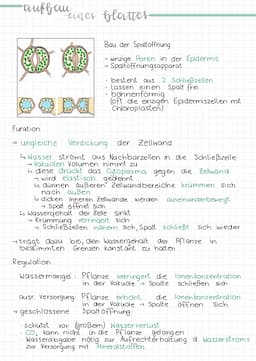 aufbau
eines blattes
Bau der Spaltöffnung
- winzige Poren in der Epidermis
→ Spaltöffnungsapparat
- besteht aus 2 Schließzellen
- lassen einen Spalt frei
- bohnenförmig
(oft die einzigen Epidermiszellen mit
Chloroplasten)
Funktion
→ ungleiche Verdickung der Zellwand
↳ Wasser strömt aus Nachbarzellen in die Schließzelle
↳ Vakuolen Volumen nimmt zu
↳ diese drückt das Cytoplasma gegen die Zellwand
→ wird elastisch gedehnt
↳ dünnen äußeren Zellwandbereiche krümmen sich
nach außen
↳ dicken inneren Zellwände werden auseinanderbewegt
→ Spalt öffnet sich
↳ Wassergehalt der Zelle sinkt
→ Krümmung verringert sich
→ Schließzellen nähern sich, Spalt schließt sich wieder
→ trägt dazu bei, den Wassergehalt der Pflanze in
bestimmten Grenzen konstant zu halten
Regulation
Wassermangel: Pflanze verringert die Ionenkonzentration
in der Vakuole → Spalte schließen sich
ausr. Versorgung: Pflanze erhöht die Ionenkonzentration
in der Vakuole → Spalte öffnen sich
→ geschlossene Spaltöffnung
schützt vor (großem) Wasserverlust
- CO₂ kann nicht in die Pflanze gelangen
- Wasserabgabe nötig zur Aufrechterhaltung d. Wasserstroms
zur Versorgung mit Mineralstoffen